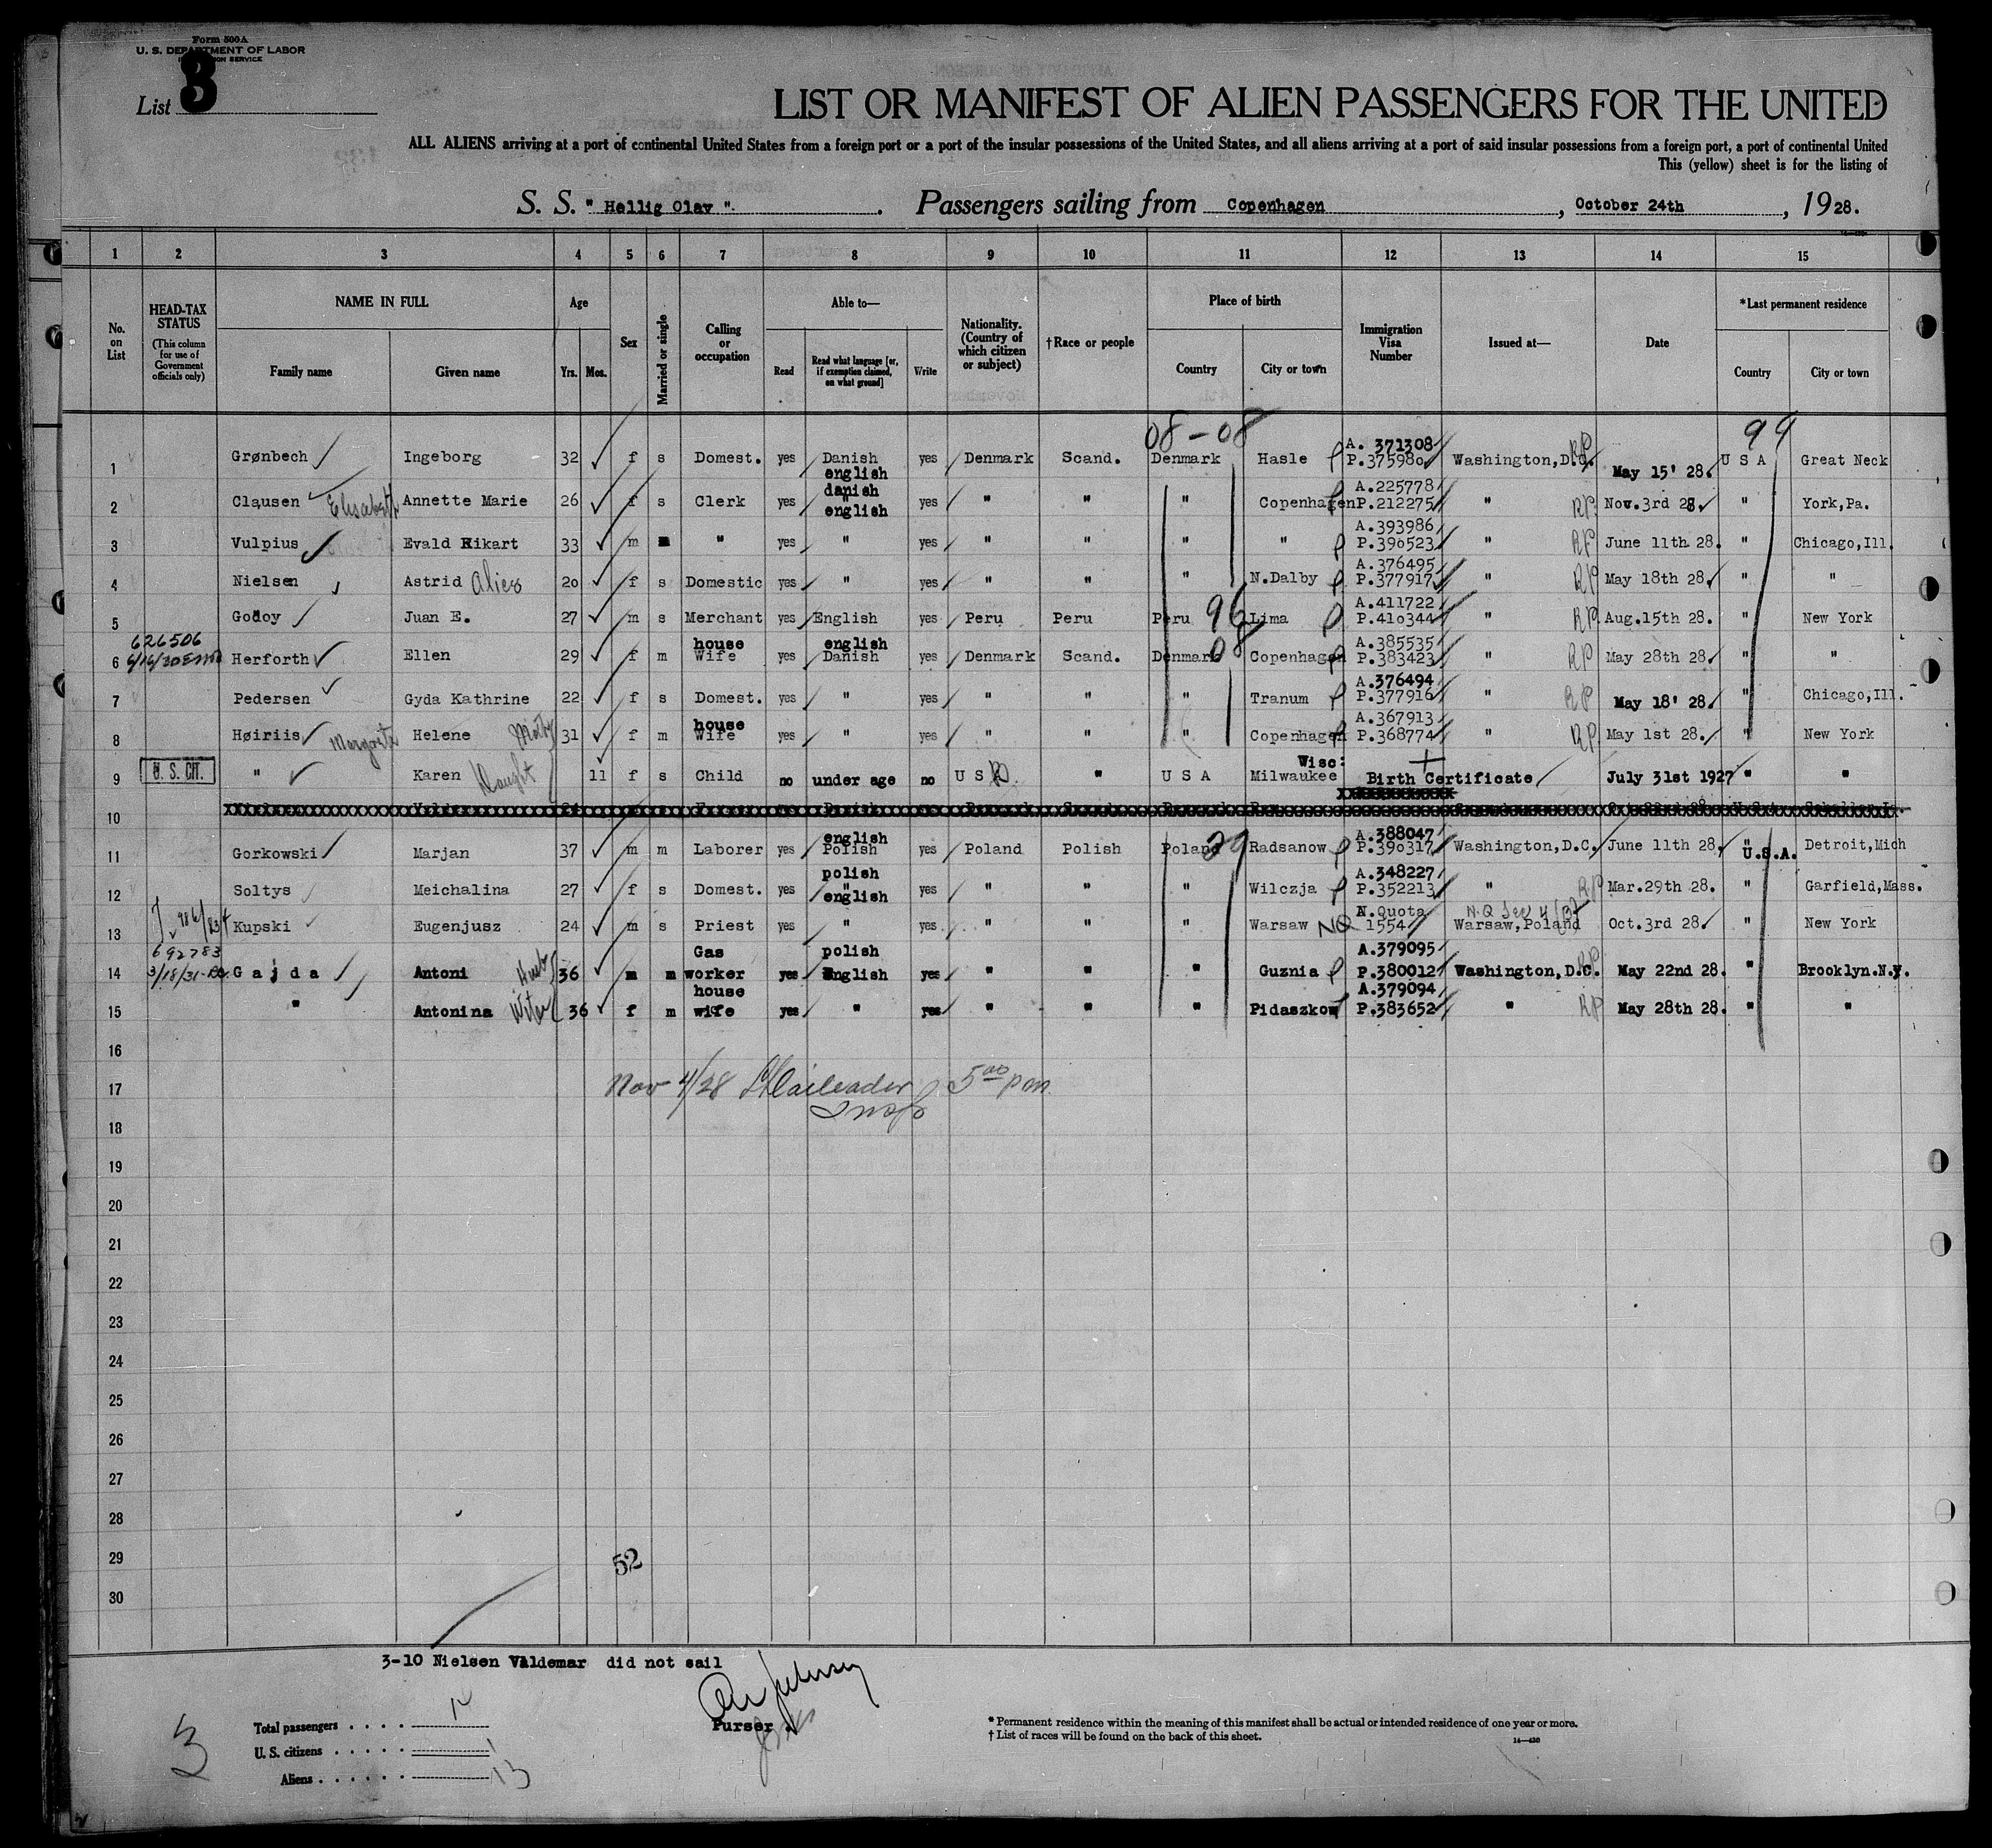 Form 500A
U. S. DEPARTMENT OF LABOR
List 3
LIST OR MANIFEST OF ALIEN PASSENGERS FOR THE UNITED
ALL ALIENS arriving at a port of continental United States from a foreign port or a port of the insular possessions of the United States, and all aliens arriving at a port of said insular possessions from a foreign port, a port of continental United
This (yellow) sheet is for the listing of
S. S. " Hellig Olav ". Passengers sailing from Copenhagen, October 24th, 1928.
1 2 3 4 5 6 7 8 9 10 11 12 13 14 15
No. on List
HEAD-TAX STATUS (This column for use of Government officials only)
NAME IN FULL Family name Given name
Age Yrs. Mos.
Sex
Married or single
Calling or occupation
Able to— Read Read what language [or, if exemption claimed, on what ground] Write
Nationality. (Country of which citizen or subject)
†Race or people
Place of birth Country City or town
Immigration Visa Number
Issued at—
Date
*Last permanent residence Country City or town
08-08 99
1 Grønbech Ingeborg 32 f s Domest. yes Danish english yes Denmark Scand. Denmark Hasle A. 371308 P.375980 Washington,D.C. RP May 15' 28. U S A Great Neck
2 Clausen Elisabeth Annette Marie 26 f s Clerk yes danish " english yes " " " Copenhagen A.225778 P.212275 " RP Nov.3rd 28 " York,Pa.
3 Vulpius Evald Rikart 33 m m " yes " yes " " " " A.393986 P.390523 " RP June 11th 28. " Chicago,Ill.
4 Nielsen Astrid Alice 20 f s Domestic yes " yes " " " N.Dalby A.376495 P.377917 " RP May 18th 28. " "
5 Godoy Juan E. 27 m s Merchant yes English yes Peru Peru Peru 96 Lima A.411722 P.410344 " RP Aug.15th 28. " New York
626506
6 Herforth Ellen 29 f m house Wife yes english Danish yes Denmark Scand. Denmark 08 Copenhagen A.385535 P.383423 " RP May 28th 28. " "
7 Pedersen Gyda Kathrine 22 f s Domest. yes " yes " " " Tranum A.376494 P.377916 " RP May 18' 28. " Chicago,Ill.
8 Høiriis Helene 31 f m house Wife yes " yes " " " Copenhagen A.367913 P.368774 " RP May 1st 28. " New York
9 U. S. CIT. " Karen Daught 11 f s Child no under age no U S A " U S A Wisc: Milwaukee Birth Certificate July 31st 1927 " "
10
11 Gorkowski Marjan 37 m m Laborer yes english Polish yes Poland Polish Poland 29 Radsanow A.388047 P.390317 Washington,D.C. June 11th 28. " U.S.A. Detroit,Mich
12 Soltys Meichalina 27 f s Domest. yes polish " english yes " " " Wilczja A.348227 P.352213 " RP Mar.29th 28. " Garfield,Mass.
13 Kupski Eugenjusz 24 m s Priest yes " yes " " " Warsaw NQ N.Quota 1554 Warsaw,Poland Oct.3rd 28. " New York
692783
14 3/18/31 Gajda Antoni Husb 36 m m Gas worker yes polish English yes " " " Guznia A.379095 P.380012 Washington,D.C. RP May 22nd 28. " Brooklyn.N.Y.
15 " Antonina Wife 36 f m house wife yes " yes " " " Pidaszkow A.379094 P.383652 " RP May 28th 28. " "
16
17 Nov 4/28 5 00 pm
Insp
18
19
20
21
22
23
24
25
26
27
28
29 52
30
3-10 Nielsen Valdemar did not sail
Purser
3
Total passengers . . . . 14
U. S. citizens . . . . . 1
Aliens . . . . . . 13
* Permanent residence within the meaning of this manifest shall be actual or intended residence of one year or more.
† List of races will be found on the back of this sheet.
14—430